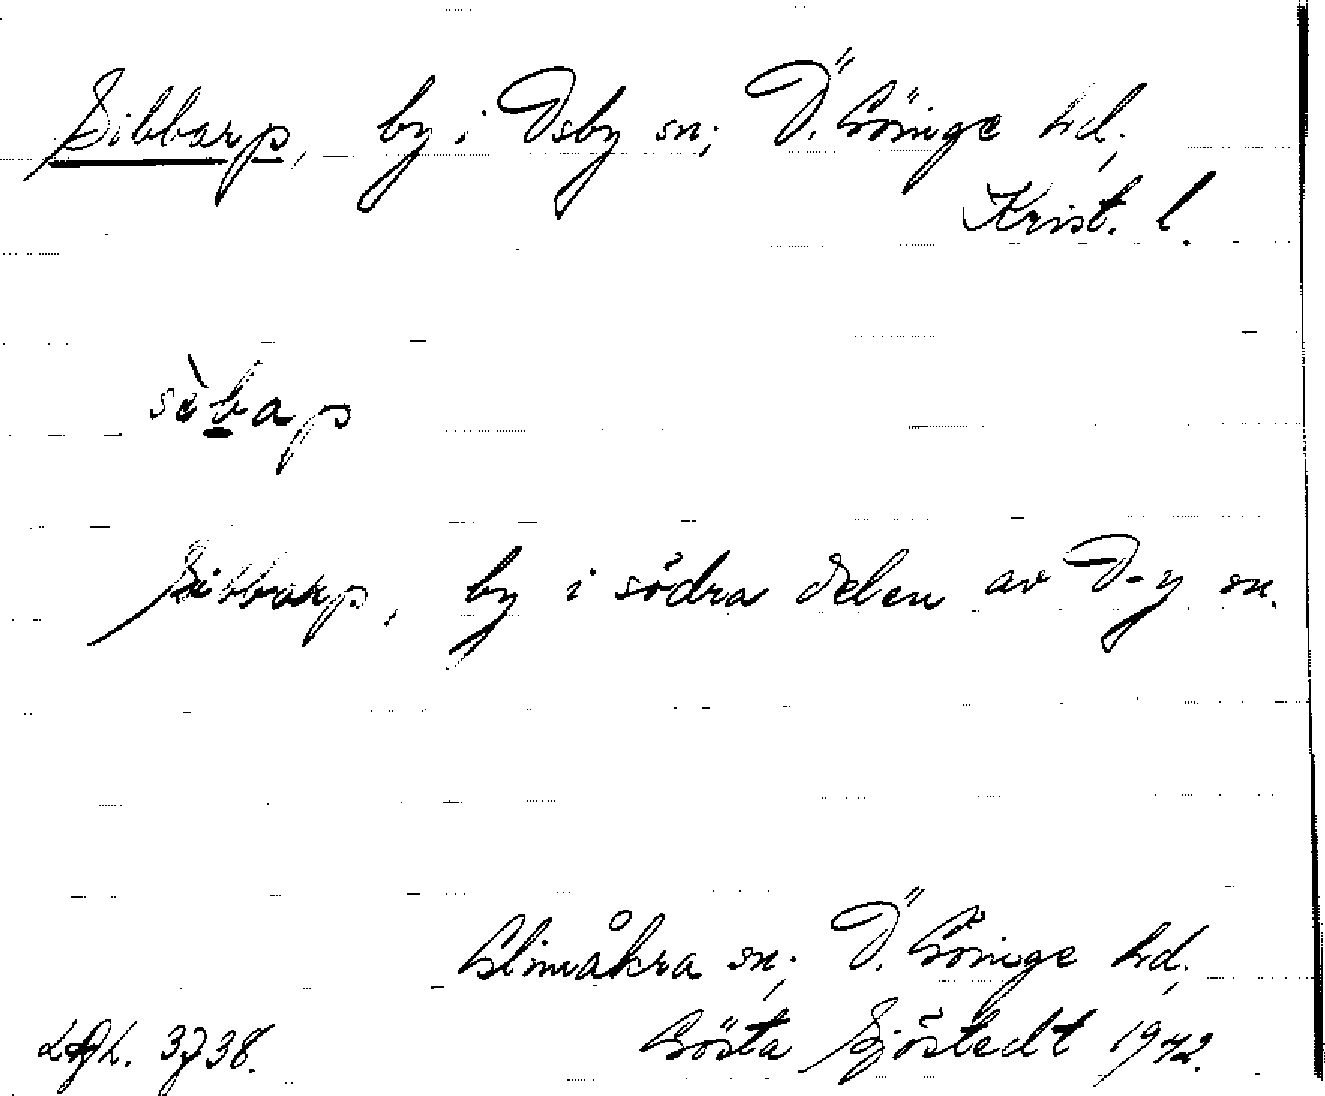 Sibbarp, by i Osby sn; Ö. Göinge hd;
Krist. l.
sìbap
Sibbarp, by i södra delen av O-y sn.
Glimåkra sn; Ö. Göinge hd;
Gösta Sjöstedt 1942.
3738.